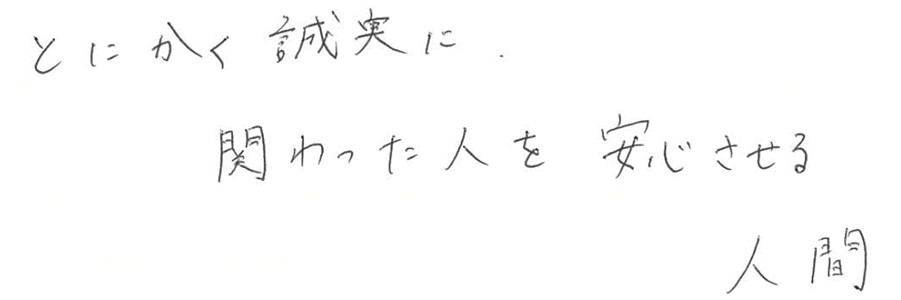 とにかく誠実に.
関わった人を安心させる
人間